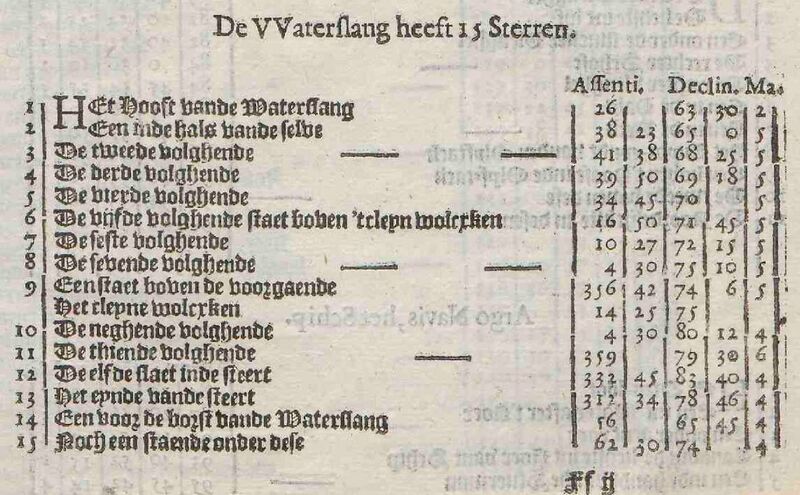 De VVaterslang heeft 15 Sterren.
Assenti. Declin. Ma.
1 HEt Hooft vande Waterslang 26 63 30 2
2 Een inde hals vande selve 38 23 65 0 5
3 De tweede volghende 41 38 68 25 5
4 De derde volghende 39 50 69 18 5
5 De vierde volghende 34 45 70 5
6 De vijfde volghende staet boven 'tcleyn wolcxken 16 50 71 45 5
7 De seste volghende 10 27 72 15 5
8 De sevende volghende 4 30 75 10 5
9 Een staet boven de voorgaende 356 42 74 6 5
Het cleyne wolcxken 14 25 75
10 De neghende volghende 4 30 80 12 4
11 De thiende volghende 359 79 30 6
12 De elfde staet inde steert 332 45 83 40 4
13 Het eynde vande steert 312 34 78 46 4
14 Een voor de borst vande Waterslang 56 65 45 4
15 Noch een staende onder dese 62 30 74 4
Ff ij